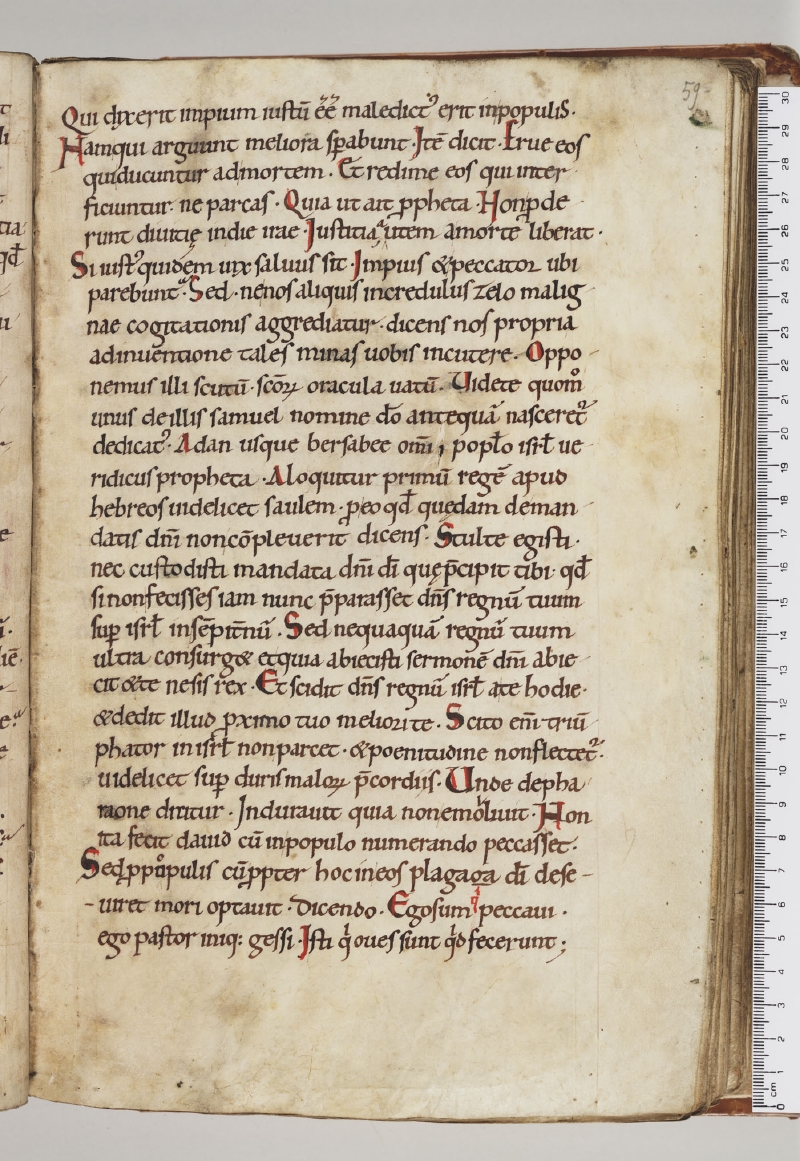 59
Qui dixerit impium iustū ēē maledictꝰ erit inpopulis·
Namqui arguunt meliora sꝑabunt· Itē dicit· Erue eos
quiducuntur admortem· Et redime eos qui inter
ficiuntur· ne parcas· Quia ut ait ꝓpheta Non ꝓde
runt diuitię indie irae· Iustitia autem amorte liberat·
Si iustꝰ quidem uix saluus sit· Impius & peccator ubi
parebunt· Sed· nenos aliquis incredulus zelo malig
nae cogitationis aggrediatur· dicens nos propria
adinuentione tales minas uobis incutere· Oppo
nemus illi scutū· sc̄oꝝ oracula uatū· Videte quom̊
unus deillis samuel nomine do antequā nasceret᷑
dedicatꝰ· Adan usque bersabee omi ; poplo isrł ue
ridicus propheta· Aloquitur primū regē apud
hebreos uidelicet saulem· ꝑeo qđ quędam deman
datis dn̄i noncōpleuerit dicens· Stulte egisti·
nec custodisti mandata dn̄i di quę p̄cipit tibi· qđ
si nonfecisses iam nunc p̄parasset dn̄s regnū tuum
suꝑ isrł insēpitnū· Sed nequaquā regnū tuum
ultra consurg& etquia abiecisti sermonē dn̄i abie
cit &te nesis rex· Et scidit dn̄s regnū isrł ate hodie·
&dedit illud ꝓximo tuo meliori te· Scito em̄ triū
phator in isrł nonparcet· &poenitudine nonflectet᷑·
uidelicet suꝑ duris maloꝝ p̄cordiis· Unde depha
raone dicitur· Indurauit quia nonemolliuit· Non
ita fecit dauid cū inpopulo numerando peccasset·
Sedꝓpopulis cū ꝓpter hoc ineos plagaga di dese-
-uiret mori optauit· Dicendo· Egosum qͥ peccaui·
ego pastor iniq: gessi· Isti qͥ oues sunt qͥd fecerunt;